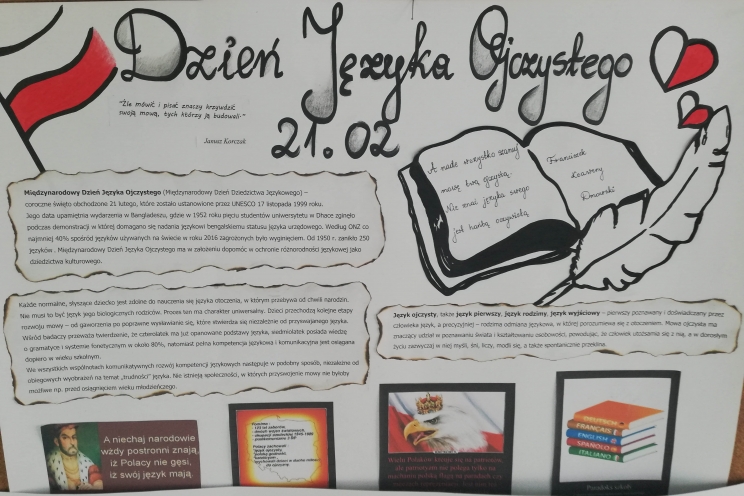 Dzień Języka Ojczystego
21.02
"Źle mówić i pisać znaczy krzywdzić
swoją mowę, tych którzy ją budowali."
Janusz Korczak
A nade wszystko szanuj
mowę twą ojczystą.
Nie znać języka swego
jest hańbą oczywistą
Franciszek
Ksawery
Dmowski
Międzynarodowy Dzień Języka Ojczystego (Międzynarodowy Dzień Dziedzictwa Językowego) –
coroczne święto obchodzone 21 lutego, które zostało ustanowione przez UNESCO 17 listopada 1999 roku.
Jego data upamiętnia wydarzenia w Bangladeszu, gdzie w 1952 roku pięciu studentów uniwersytetu w Dhace zginęło
podczas demonstracji w której domagano się nadania językowi bengalskiemu statusu języka urzędowego. Według ONZ co
najmniej 40% spośród języków używanych na świecie w roku 2016 zagrożonych było wyginięciem. Od 1950 r. zanikło 250
języków. Międzynarodowy Dzień Języka Ojczystego ma w założeniu dopomóc w ochronie różnorodności językowej jako
dziedzictwa kulturowego.
Każde normalne, słyszące dziecko jest zdolne do nauczenia się języka otoczenia, w którym przebywa od chwili narodzin.
Nie musi to być język jego biologicznych rodziców. Proces ten ma charakter uniwersalny. Dzieci przechodzą kolejne etapy
rozwoju mowy – od gaworzenia po poprawne wysławianie się, które stwierdza się niezależnie od przyswajanego języka.
Wśród badaczy przeważa twierdzenie, że czterolatek ma już opanowane podstawy języka, siedmiolatek posiada wiedzę
o gramatyce i systemie fonetycznym w około 80%, natomiast pełna kompetencja językowa i komunikacyjna jest osiągana
dopiero w wieku szkolnym.
We wszystkich wspólnotach komunikatywnych rozwój kompetencji językowych następuje w podobny sposób, niezależnie od
obiegowych wyobrażeń na temat „trudności" języka. Nie istnieją społeczności, w których przyswojenie mowy nie byłoby
możliwe np. przed osiągnięciem wieku młodzieńczego.
Język ojczysty, także język pierwszy, język rodzimy, język wyjściowy – pierwszy poznawany i doświadczany przez
człowieka język, a precyzyjniej – rodzima odmiana językowa, w której porozumiewa się z otoczeniem. Mowa ojczysta ma
znaczący udział w poznawaniu świata i kształtowaniu osobowości, powodując, że człowiek utożsamia się z nią, a w dorosłym
życiu zazwyczaj w niej myśli, śni, liczy, modli się, a także spontanicznie przeklina.
A niechaj narodowie
wżdy postronni znają,
iż Polacy nie gęsi,
iż swój język mają.
Polacy zachowali
DEUTSCH
FRANÇAIS
ENGLISH
ESPAÑOL
ITALIANO